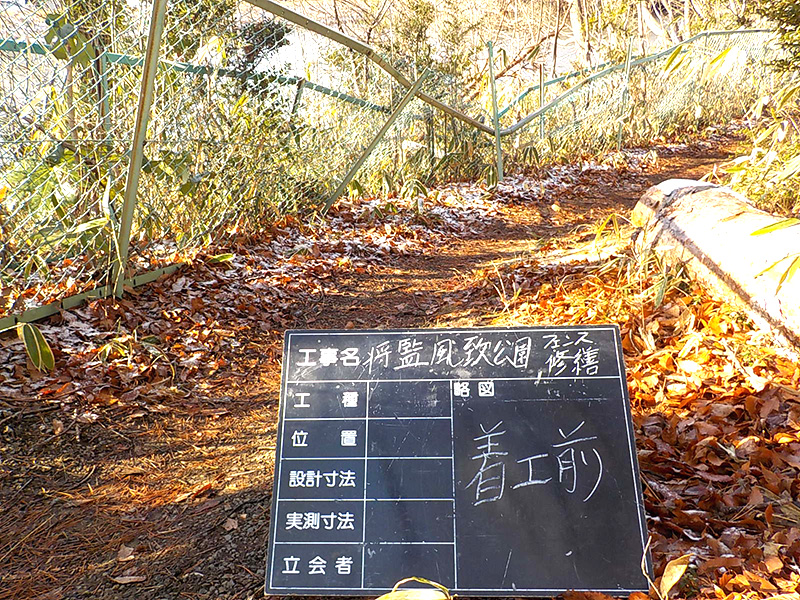 工事名 将監風致公園 フェンス修繕
工種
略図
位置
設計寸法
実測寸法
立会者
着工前